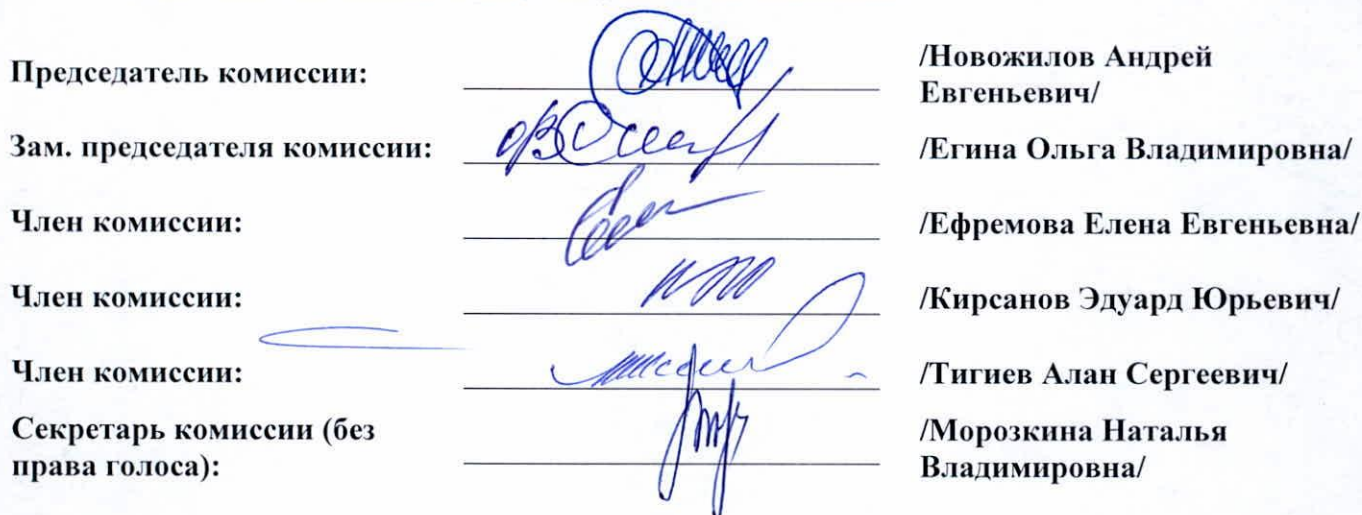 Председатель комиссии: /Новожилов Андрей
Евгеньевич/
Зам. председателя комиссии: /Егина Ольга Владимировна/
Член комиссии: /Ефремова Елена Евгеньевна/
Член комиссии: /Кирсанов Эдуард Юрьевич/
Член комиссии: /Тигиев Алан Сергеевич/
Секретарь комиссии (без /Морозкина Наталья
права голоса): Владимировна/